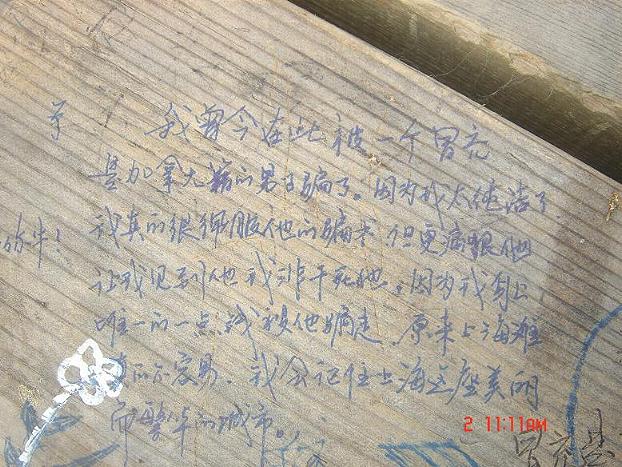 我曾今在此被一个冒充
是加拿大籍的男子骗了。因为我太纯洁了.
我真的很佩服他的骗术 但更痛狠他
让我见到他我非干死他。因为我身上
唯一的一点钱被他骗走 原来上海滩
真的不容易. 我会记住上海这座美丽
而繁华的城市。
2 11:11AM